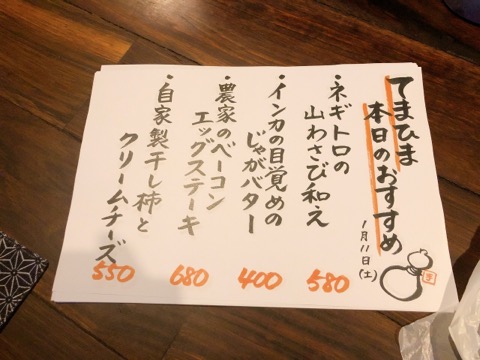 てまひま
本日のおすすめ
1月11日(土)
・ネギトロの
山わさび和え
580
・インカの目覚めの
じゃがバター
400
・農家のベーコン
エッグステーキ
680
・自家製干し柿と
クリームチーズ
550